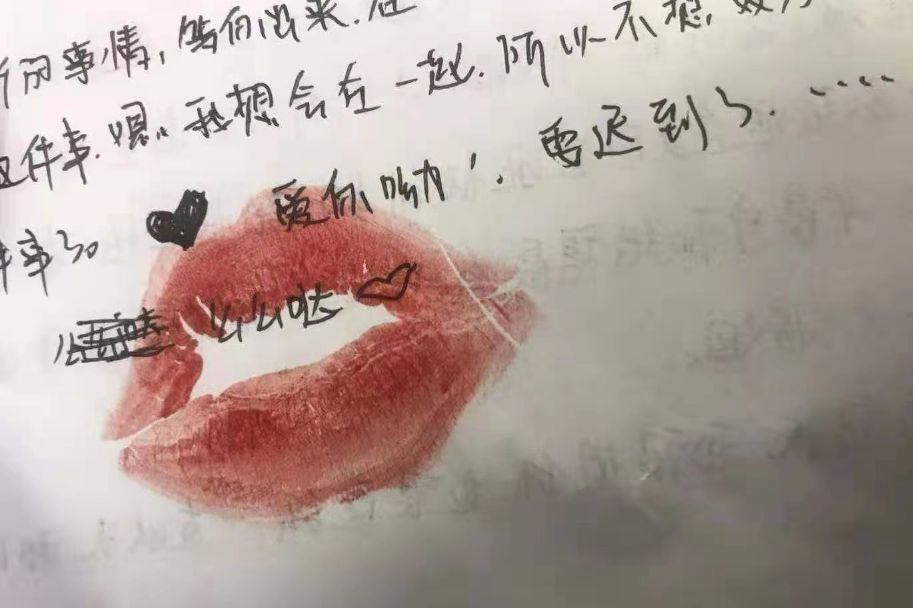 的事情,等你出来.在
这件事.嗯。我想会在一起.所以不想
件事了。 爱你呦!. 要迟到了.....
么么哒